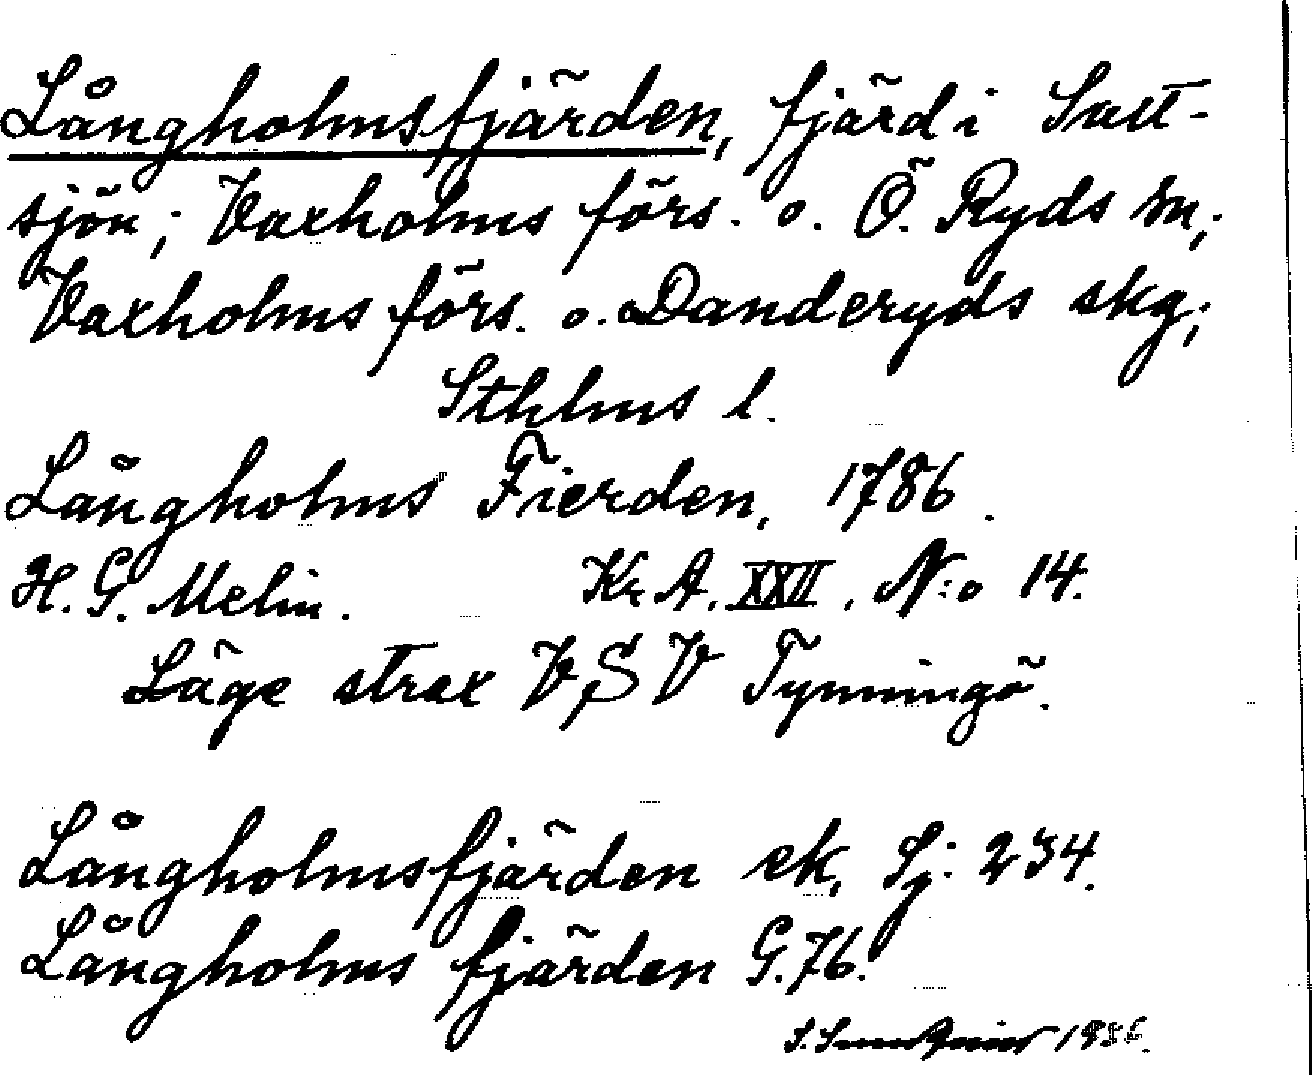 Långholmsfjärden, fjärd i Salt-
sjön; Vaxholms förs. o. Ö. Ryds sn;
Vaxholms förs. o. Danderyds skg;
Sthlms l.
Långholms Fierden, 1786.
H. G. Melin. Kr A. XXII, N:o 14.
Läge strax VSV Tynningö.
Långholmsfjärden ek, Sj: 234.
Långholms fjärden G. 76.
S.